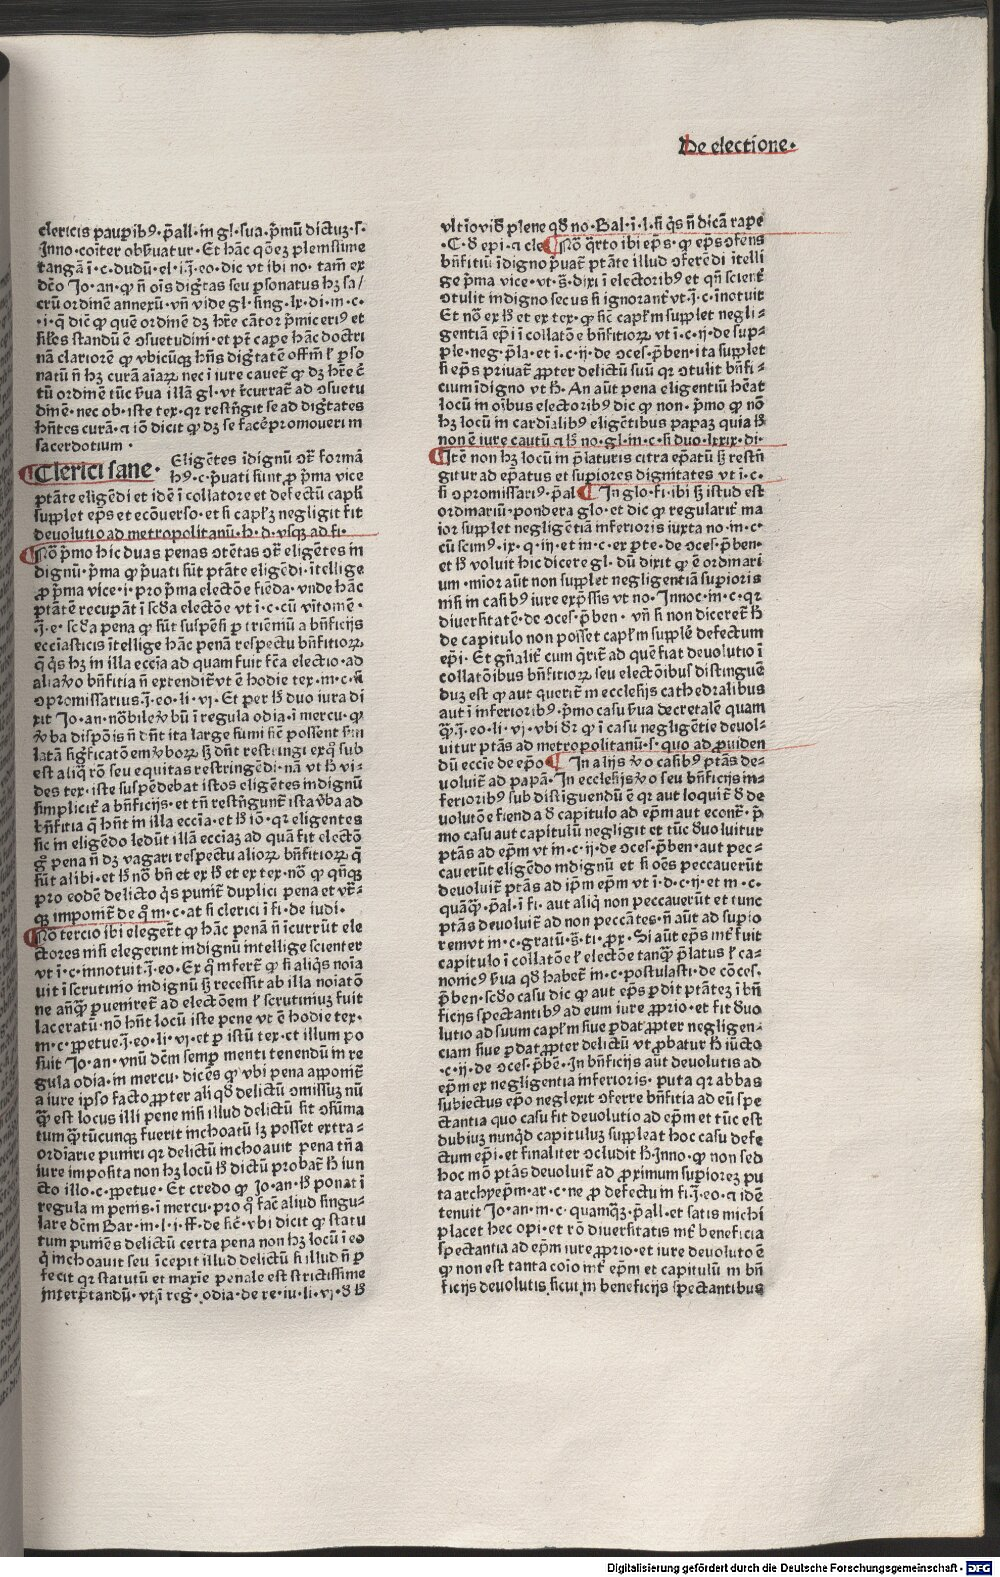 De electione.
clericis pauꝑibꝰ. p̄all. in gl. sua. p̄mū dictuꝫ. s.
Inno. coīter obẜuatur. Et hāc qōeꝫ plenissime
tangā ī. c. dudū. el. i. ī. eo. dic vt ibi no. tam̄ ex
dc̄o Jo. an. ꝙ n̄ oīs digtas seu ꝑsonatus hꝫ sa/
crū ordinē annexū. vn̄ vide gl. sing. lx. di. in. c.
.i. q̄ dic̄ ꝙ que ordinē dꝫ hr̄e cātor p̄miceriꝰ et
sil̄es standū ē ꝯsuetudini. et pt̄ cape hāc doctri
nā clariorē ꝙ vbicūqꝫ hn̄s digtatē offm̄ ł ꝑso
natū n̄ hꝫ curā aīaꝝ nec ī iure cauet̄ ꝙ dꝫ hr̄e c̄
tū ordinē tūc ẜua illā gl. vt r̄currat̄ ad ꝯsuetu
dinē. nec ob. iste tex. qr restn̄git se ad digtates
hn̄tes curā. ⁊ iō dicit ꝙ dꝫ se facē promoueri in
sacerdotium.
Clerici sane. Eligētes īdignū ꝯt̄ formā
hꝰ. c. p̄uati sunt ꝓ p̄ma vice
ptāte eligēdi et idē ī collatore et defectū capli
supplet ep̄s et ecōuerso. et si caplꝫ negligit fit
deuolutio ad metropolitanū. h. d. vsqꝫ ad fi.
No p̄mo hic duas penas ꝯtētas ꝯt̄ eligētes in
dignū. p̄ma ꝙ p̄uati sūt ptāte eligēdi. ītellige
ꝓ p̄ma vice. i. pro p̄ma electōe fiēda. vnde hāc
ptātē recuperāt ī scd̄a electōe vt ī. c. cū vītomē.
ī. e. scd̄a pena ꝙ sūt suspēsi ꝑ triēniū a bn̄ficijs
ecc̄iasticis ītellige hāc penā respectu bn̄fitioꝝ.
q̄ q̄s hꝫ in illa ecc̄ia ad quam fuit fc̄a electio. ad
alia ꝟo bn̄fitia n̄ extendit̄ vt ē hodie tex. in. c. si
ꝯpromissarius. ī. eo. li. vj. Et per hꝫ duo iura di
xit Jo. an. nōbile ꝟbū ī regula odia. ī mercu. ꝙ
ꝟba dispōis n̄ dn̄t ita large sumi sic̄ possent ẜm
latā significatōem ꝟboꝝ sꝫ dn̄t restrīgi exq̄ sub
est aliq̄ rō seu equitas restringēdi. nā vt hꝫ vi-
des tex. iste suspēdebat istos eligētes indignū
simplicit̄ a bn̄ficijs. et tn̄ restn̄gunt̄ ista ꝟba ad
bn̄fitia q̄ hn̄t in illa ecc̄ia. et hꝫ iō. qr eligentes
sic in eligēdo ledūt illā ecc̄iaꝫ ad quā fit electō
gͦ pena n̄ dꝫ vagari respectu alioꝝ bn̄fitioꝝ q̄
sūt alibi. et hꝫ nō bn̄ et ex hꝫ et ex tex. nō ꝙ qn̄qꝫ
pro eodē delicto q̄s punit̄ duplici pena et vt̄-
qꝫ imponit̄ de q̄ in. c. at si clerici ī fi. de iudi.
No tercio ibi elegerīt ꝙ hāc penā n̄ īcurrūt ele
ctores nisi elegerint indignū intellige scienter
vt ī. c. innotuit. ī. eo. Ex q̄ infert̄ ꝙ si aliq̄s noīa
uit ī scrutinio indignū sꝫ recessit ab illa noīatō
ne añq̄ꝫ ꝑueniret̄ ad electōem ł scrutiniuꝫ fuit
laceratū. nō hn̄t locū iste pene vt ē hodie tex.
in. c. ꝑpetue. ī. eo. li. vj. et ꝑ istū tex. et illum po
suit Jo. an. vnū dc̄m semꝑ menti tenendū in re
gula odia. in mercu. dicēs ꝙ vbi pena apponit̄
a iure ipso facto ꝓpter aliqd̄ delictū ꝯmissuꝫ nū
q̄ꝫ est locus illi pene nisi illud delictū sit ꝯsūma
tum q̄ꝫtūcunqꝫ fuerit inchoatū lꝫ posset extra-
ordiarie puniri qr delictū inchoauit pena tn̄ a
iure imposita non hꝫ locū hꝫ dictū probat̄ hꝫ iun
cto illo. c. ꝑpetue. Et credo ꝙ Jo. an. hꝫ ponat ī
regula in penis. ī mercu. pro q̄ fac̄ aliud singu-
lare dc̄m Bar. in. l. i. ff. de sic̄. vbi dicit ꝙ statu
tum puniēs delictū certa pena non hꝫ locū ī eo
q̄ inchoauit seu īcepit illud delictū si illud n̄ ꝑ
fecit qr statutū et maxīe penale est strictissime
interp̄tandū. vt. ī reg. odia. de re. iu. li. vj. d hꝫ
vltīo vid̄ plene qd̄ no. Bal. ī. l. si q̄s n̄ dicā rape
. C. d epi. ⁊ cle No q̄rto ibi ep̄s. ꝙ ep̄s ꝯferēs
bn̄fitiū īdigno p̄uat̄ ptāte illud ꝯferēdi ītelli
ge p̄ma vice. vt. s̄. dixi ī electoribꝰ et qn̄ scient̄
ꝯtulit indigno secus si ignorant̄ vt. ī. c. inotuit
Et nō ex hꝫ et ex tex. ꝙ sic̄ capłm supplet negli-
gentiā ep̄i ī collatōe bn̄fitioꝝ vt ī. c. ij. de sup-
ple. neg. p̄la. et ī. c. ij. de ꝯces. p̄ben. ita supplet
si ep̄s priuat̄ ꝓpter delictū suū qr ꝯtulit bn̄fi-
cium īdigno vt hꝫ. An aūt pena eligentiū heāt
locū in oībus electoribꝰ dic ꝙ non. p̄mo ꝙ nō
hꝫ locū in cardīalibꝰ eligētibus papaꝫ quia hꝫ
non ē iure cautū ⁊ hꝫ no. gl. in. c. si duo. lxxix. di.
Itē non hꝫ locū in p̄laturis citra ep̄atū sꝫ restn̄
gitur ad ep̄atus et supiores dignitates vt ī. c.
si ꝯpromissariꝰ. p̄al In glo. fi. ibi sꝫ istud est
ordinariū. pondera glo. et dic ꝙ regularit̄ ma
ior supplet negligētiā inferioris iuxta no. in. c.
cū scimꝰ. ix. q. iij. et in. c. ex ꝑte. de ꝯces. p̄ben.
et hꝫ voluit hic dicere gl. dū dixit ꝙ ē ordinari
um. minor aūt non supplet negligentiā supioris
nisi in casibꝰ iure exp̄ssis vt no. Innoc. in. c. qr
diuersitatē. de ꝯces. p̄ben. vn̄ si non diceret̄ hꝫ
de capitulo non posset capłm supplē defectum
ep̄i. Et gn̄alit̄ cum q̄rit̄ ad quē fiat deuolutio ī
collatōibus bn̄fitioꝝ seu electōibus distinguē
duꝫ est ꝙ aut querit̄ in ecclesijs cathedralibus
aut ī inferioribꝰ. p̄mo casu ẜua decretalē quam
q̄ꝫ. ī. eo. li. vj. vbi dr̄ ꝙ ī casu negligētie deuol-
uitur ptās ad metropolitanū. s. quo ad ꝓuiden
dū ecc̄ie de ep̄o In alijs ꝟo casibꝰ ptās de-
uoluit̄ ad papā. In ecclesijs ꝟo seu bn̄ficijs in-
ferioribꝰ sub distiguendū ē qr aut loquit̄ d de
uolutōe fienda d capitulo ad ep̄m aut econt̄. p̄
mo casu aut capitulū negligit et tūc d̄uoluitur
ptās ad ep̄m vt in. c. ij. de ꝯces. p̄ben. aut pec-
cauerūt eligēdo indignū et si oēs peccauerūt
deuoluit̄ ptās ad ip̄m ep̄m vt ī. d. c. ij. et in. c.
quāq̄ꝫ. p̄al. ī fi. aut aliq̄ non peccauerūt et tunc
ptās deuoluit̄ ad non peccātes. n̄ aūt ad supio
rem vt in. c. gratū. s̄. ti. ꝓx. Si aūt ep̄s int̄ fuit
capitulo ī collatōe ł electōe tanq̄ꝫ p̄latus ł ca-
nonicꝰ ẜua qd̄ habet̄ in. c. postulasti. de cōces.
p̄ben. scd̄o casu dic ꝙ aut ep̄s ꝑdit ptātez ī bn̄
ficijs spectantibꝰ ad eum iure ꝓprio. et fit d̄uo
lutio ad suum capłm siue ꝑdat ꝓpter negligen-
ciam siue ꝑdat ꝓpter delictū vt ꝓbatur hꝫ iūcto
. c. ij. de ꝯces. p̄bē. In bn̄ficijs aūt deuolutis ad
ep̄m ex negligentia inferioris. puta qr abbas
subiectus ep̄o neglexit ꝯferre bn̄fitia ad eū spe
ctantia quo casu fit deuolutio ad ep̄m et tūc est
dubiuꝫ nunqd̄ capituluꝫ suppleat hoc casu defe
ctum ep̄i. et finaliter ꝯcludit hꝫ. Inno. ꝙ non sed
hoc mō ptās deuoluit̄ ad ꝓximum supiorez pu
ta archyep̄m. ar. c. ne ꝓ defectu in fi. ī. eo. ⁊ idē
tenuit Jo. an. in. c. quamqꝫ. p̄all. et satis michi
placet hec opi. et rō diuersitatis int̄ beneficia
spectantia ad ep̄m iure ꝓprio. et iure deuoluto ē
ꝙ non est tanta coīo int̄ ep̄m et capitulū in bn̄
ficijs deuolutis sicut in beneficijs spectantibus
Digitalisierung gefördert durch die Deutsche Forschungsgemeinschaft - DFG